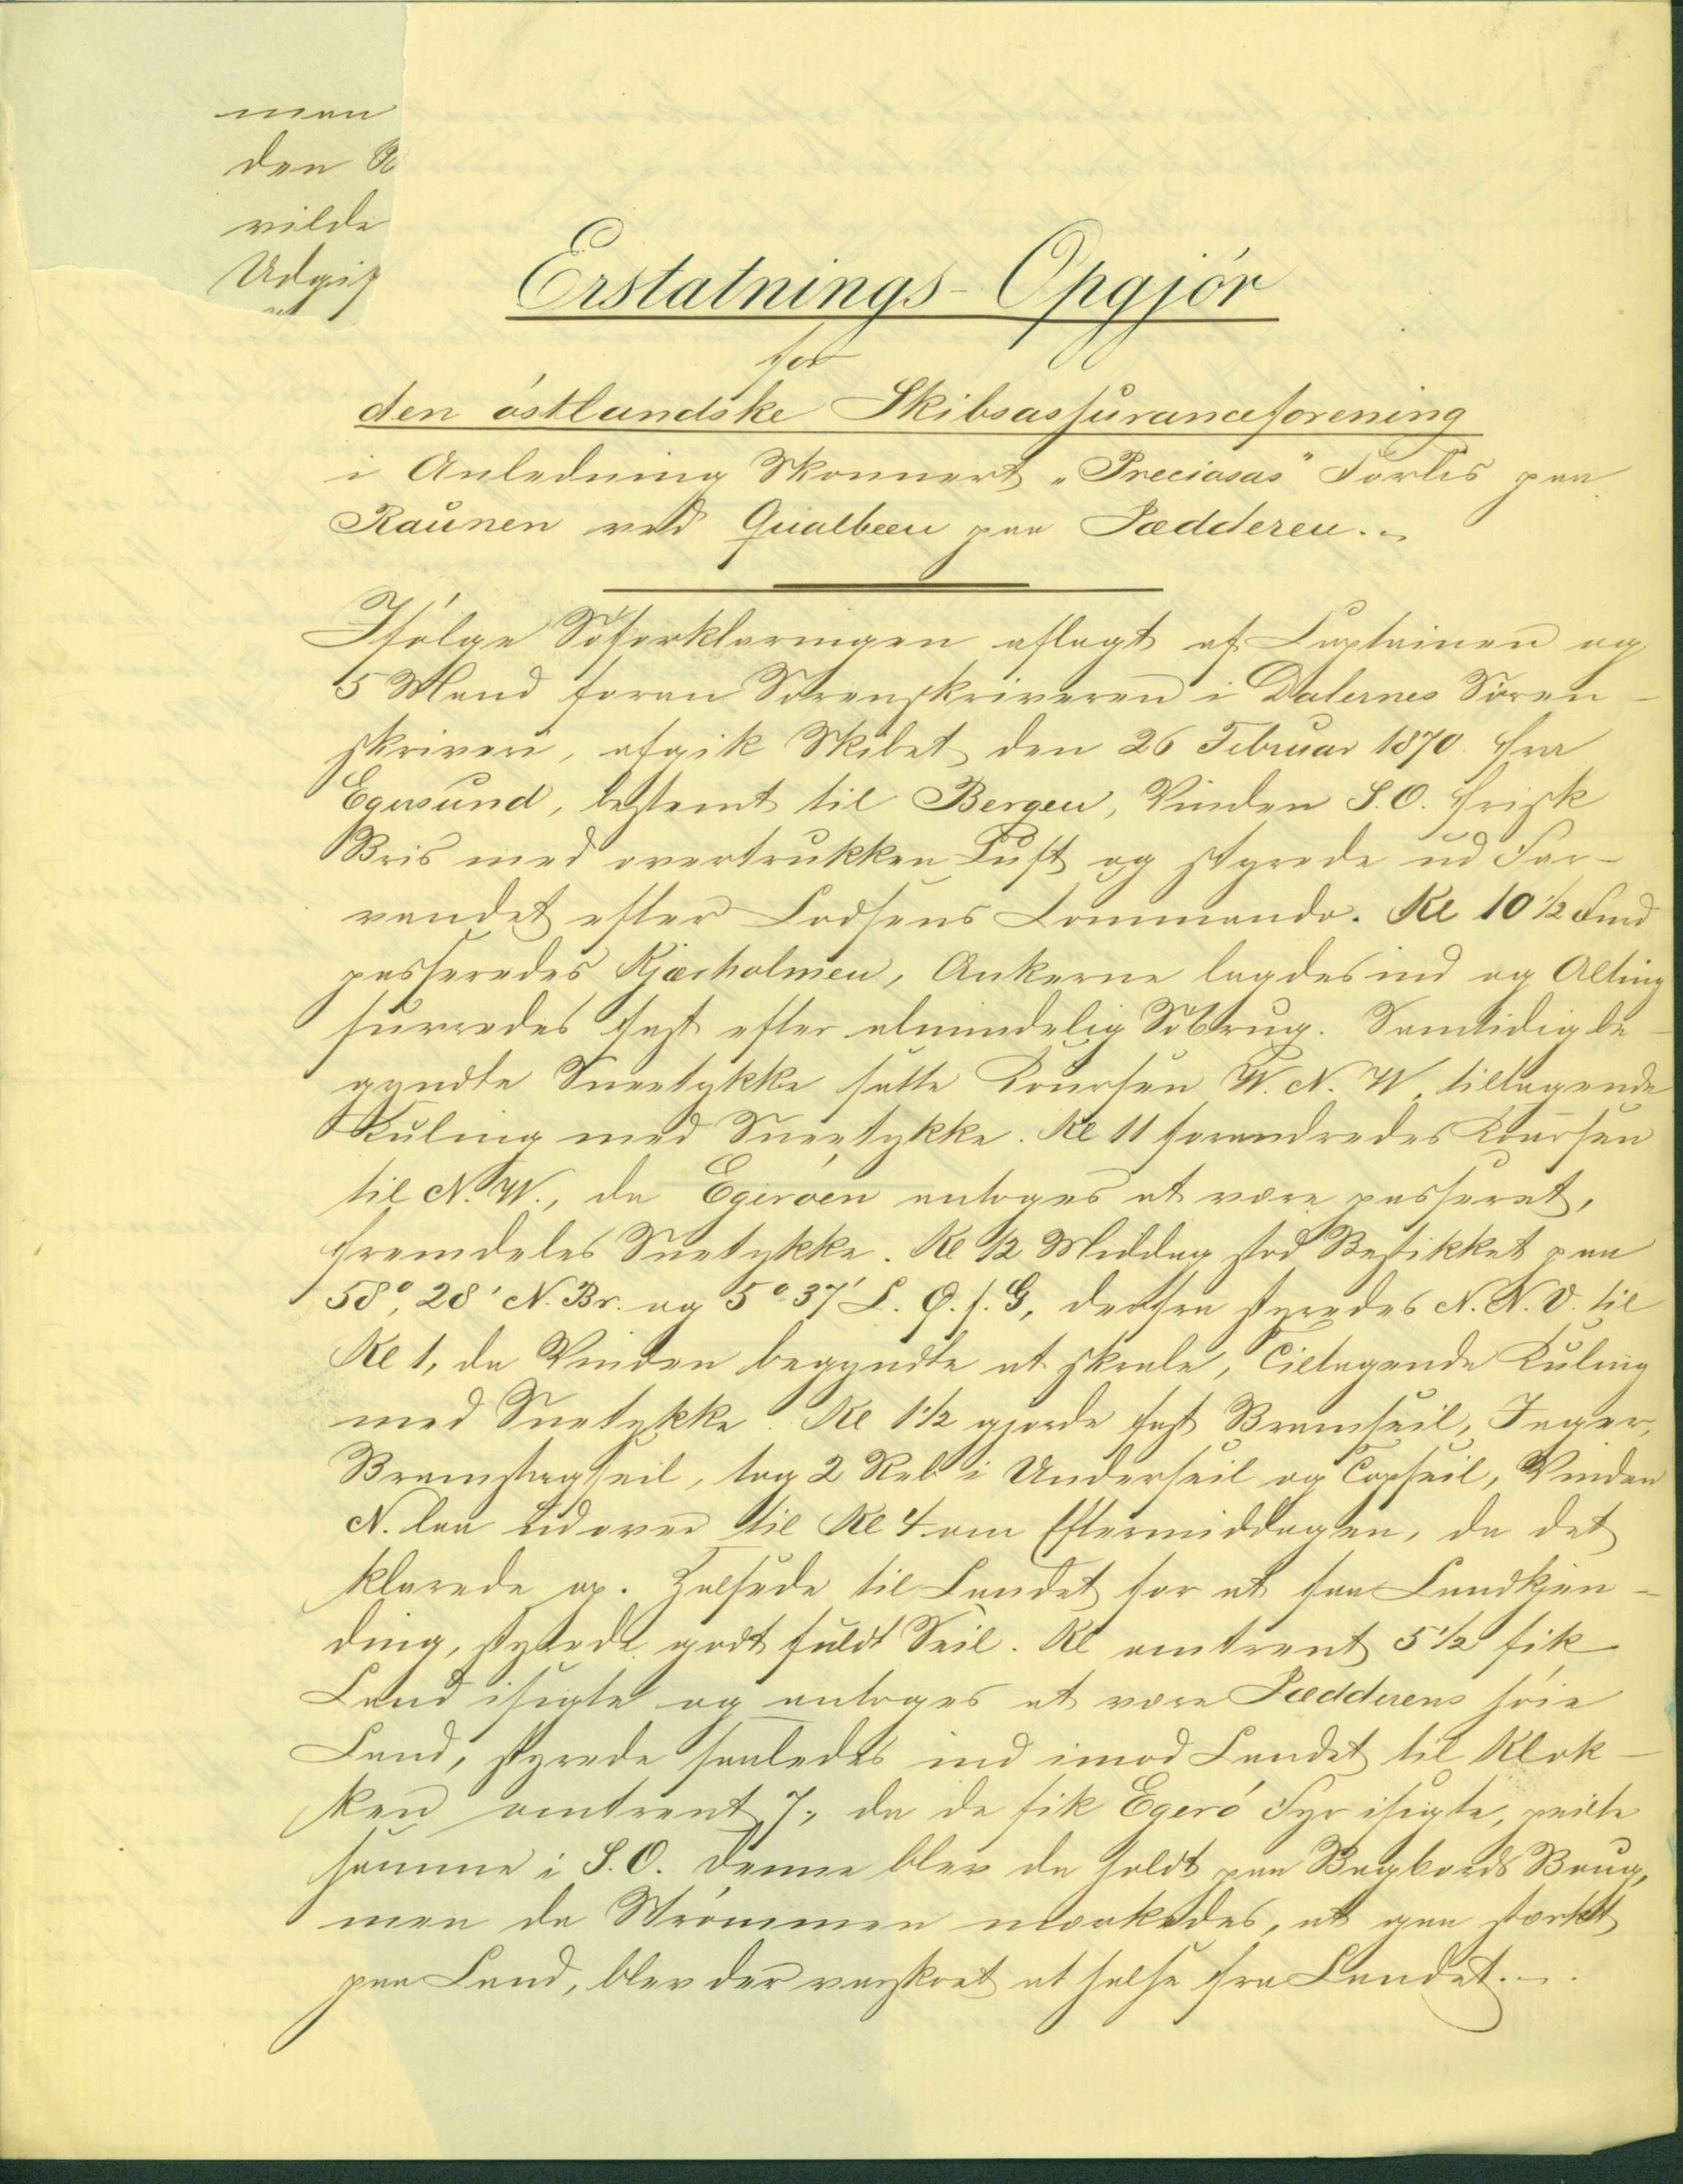 man
den R
vilde
Udgif
Erstatnings-Opgjör
for
den östlandske Skibsassuranceforening
i Anledning Skonnert „Preciosas" Forlis paa
Raunen ved Qualbeen paa Jædderen.
Ifölge Söforklaringen aflagt af Captainen og
5 Mand foran Sorenskriveren i Dalernes Soren-
skriveri, afgik Skibet den 26 Februar 1870 fra
Egersund, bestemt til Bergen, Vinden S.O. frisk
Bris med overtrukken Luft og styrede ud Far-
vandet efter Lodsens Commando. Kl 10 1/2 Fmd
passeredes Kjærholmen, Ankerne lagdes ind og Alting
surredes fast efter almindelig Söbrug. Samtidig be-
gyndte Sneetykke satte Coursen W.N.W, tiltagende
Kuling med Sneetykke. Kl 11 forandredes Coursen
til N.W., da Egeröen antoges at være passeret,
fremdeles Snetykke. Kl 12 Middag stod Bestikket paa
58°, 28' N. Br. og 5° 37' L. Ø. f. G, derfra styredes N.N.V. til
Kl 1, da Vinden begyndte at skrale, Tiltagende Kuling
med Snetykke. Kl 1 1/2 gjorde fast Bramseil, Jager,
Bramstagseil, tog 2 Reb i Underseil og Topseil, Vinden
N. laa udover til Kl 4 om Eftermiddagen, da det
klarede op. Halsede til Landet for at faa Landkjen-
ding, styrede godt fuldt Seil. Kl omtrent 5 1/2 fik
Land isigte og antoges at være Jædderens höie
Land, styrede saaledes ind imod Landet til Klok-
ken omtrent 7, da de fik Egerö Fyr isigte, peilte
samme i S.O. Denne blev da holdt paa Bagbords Boug,
men da Strömmen mærkedes, at gaa stærkt
paa Land, blev der varskoet at halse fra Landet.